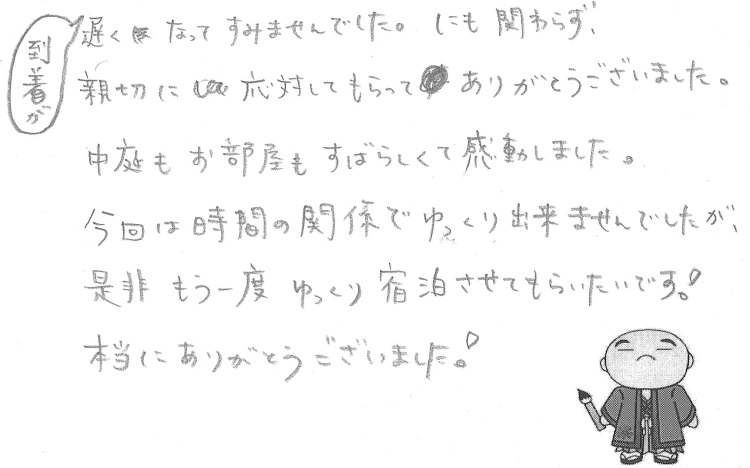 到着が
遅くなってすみませんでした。にも関わらず、
親切に応対してもらってありがとうございました。
中庭もお部屋もすばらしくて感動しました。
今回は時間の関係でゆっくり出来ませんでしたが、
是非もう一度ゆっくり宿泊させてもらいたいです。
本当にありがとうございました。